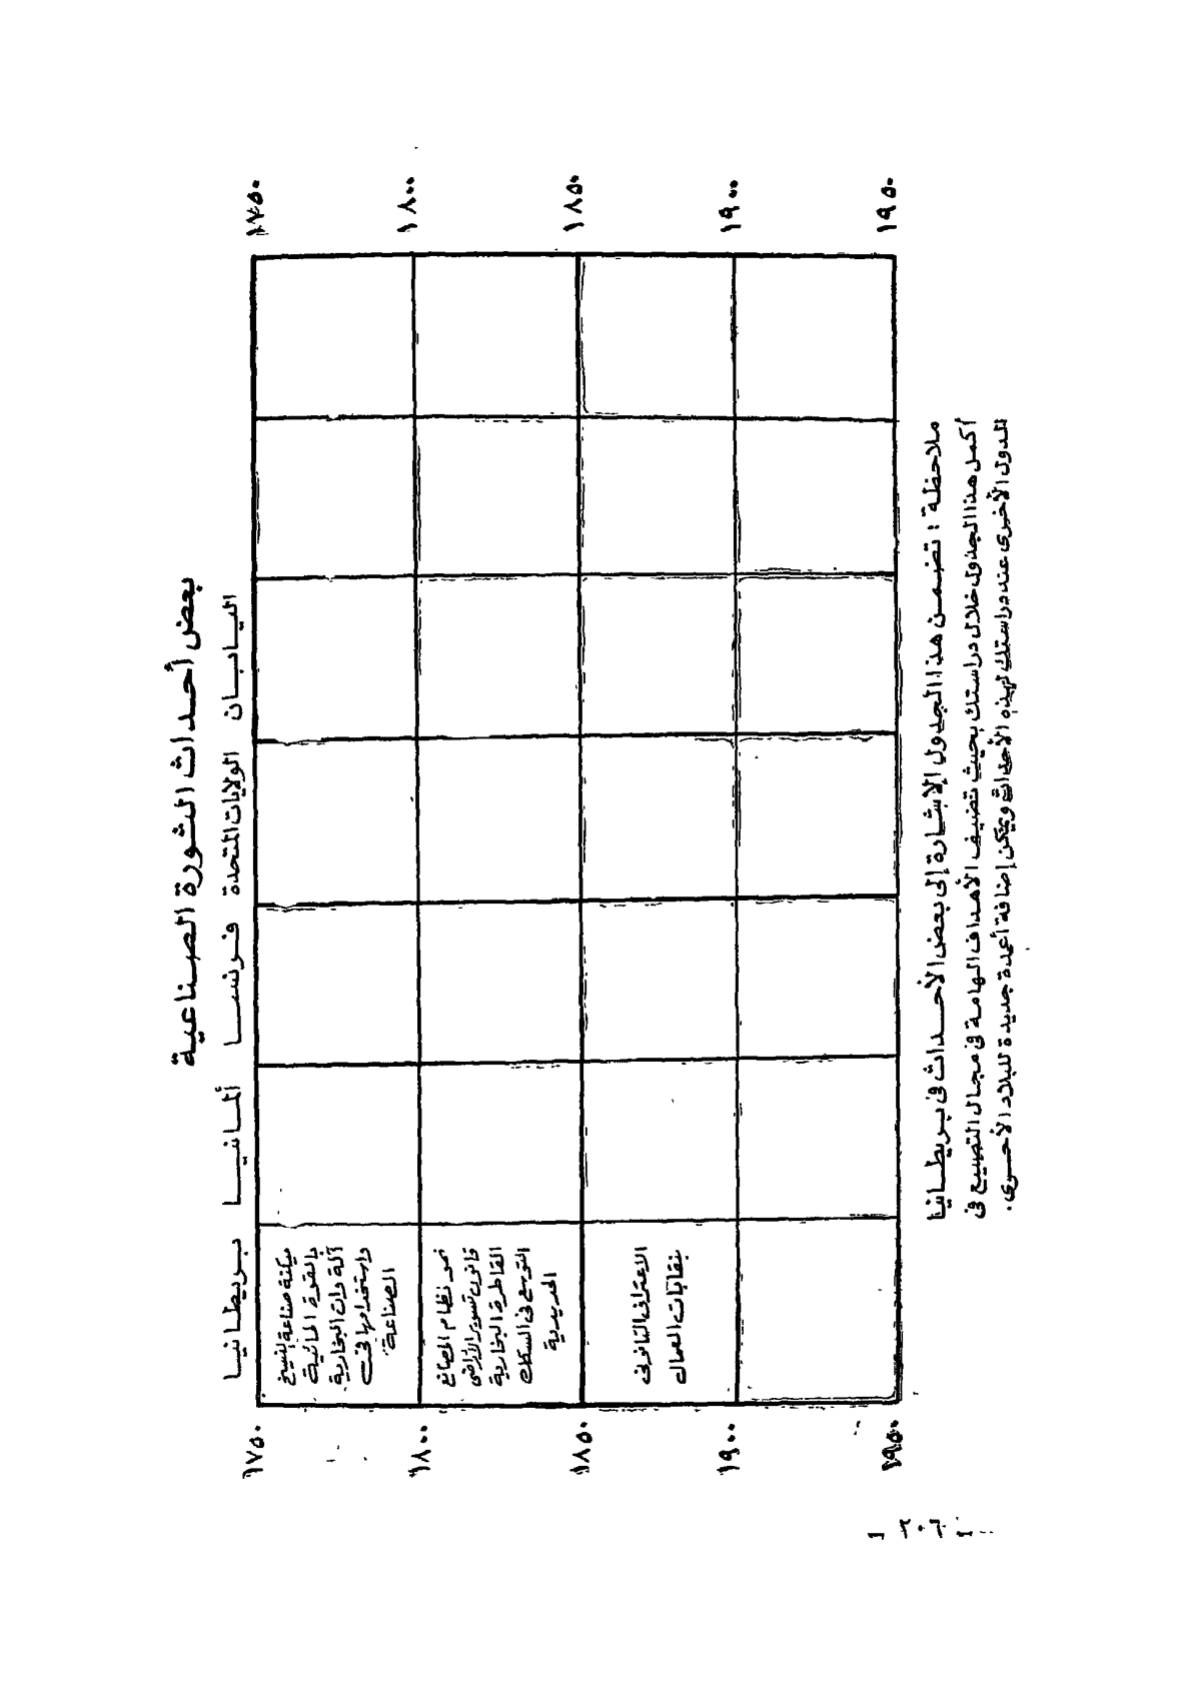 بعض أحداث الثورة الصناعية
بريطانيا ألمانيا فرنسا الولايات المتحدة اليابان
١٧٥٠ ١٧٥٠
ميكنة صناعة النسيج
بالقوة المائية
آلة وات البخارية
واستخدامها في
الصناعة
١٨٠٠ ١٨٠٠
نمو نظام المصانع
قانون تسوير الأراضى
القاطرة البخارية
التوسع فى السكك
الحديدية
١٨٥٠ ١٨٥٠
الاعتراف القانونى
بنقابات العمال
١٩٠٠ ١٩٠٠
١٩٥٠ ١٩٥٠
ملاحظة : تضمن هذا الجدول الإشارة إلى بعض الأحداث فى بريطانيا
أكمل هذا الجدول خلال دراستك بحيث تضيف الأهداف الهامة فى مجال التصنيع فى
الدول الأخرى عند دراستك لهذه الأحداث ويمكن إضافة أعمدة جديدة للبلاد الأخرى.
٢٠٦